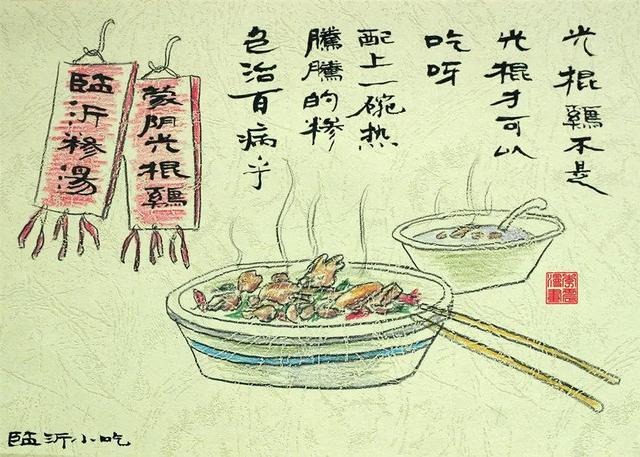 光棍鷄不是
光棍才可以
吃呀
配上一碗热
騰騰的糁
包治百病乎
蒙阴光棍鷄
臨沂糁湯
臨沂小吃